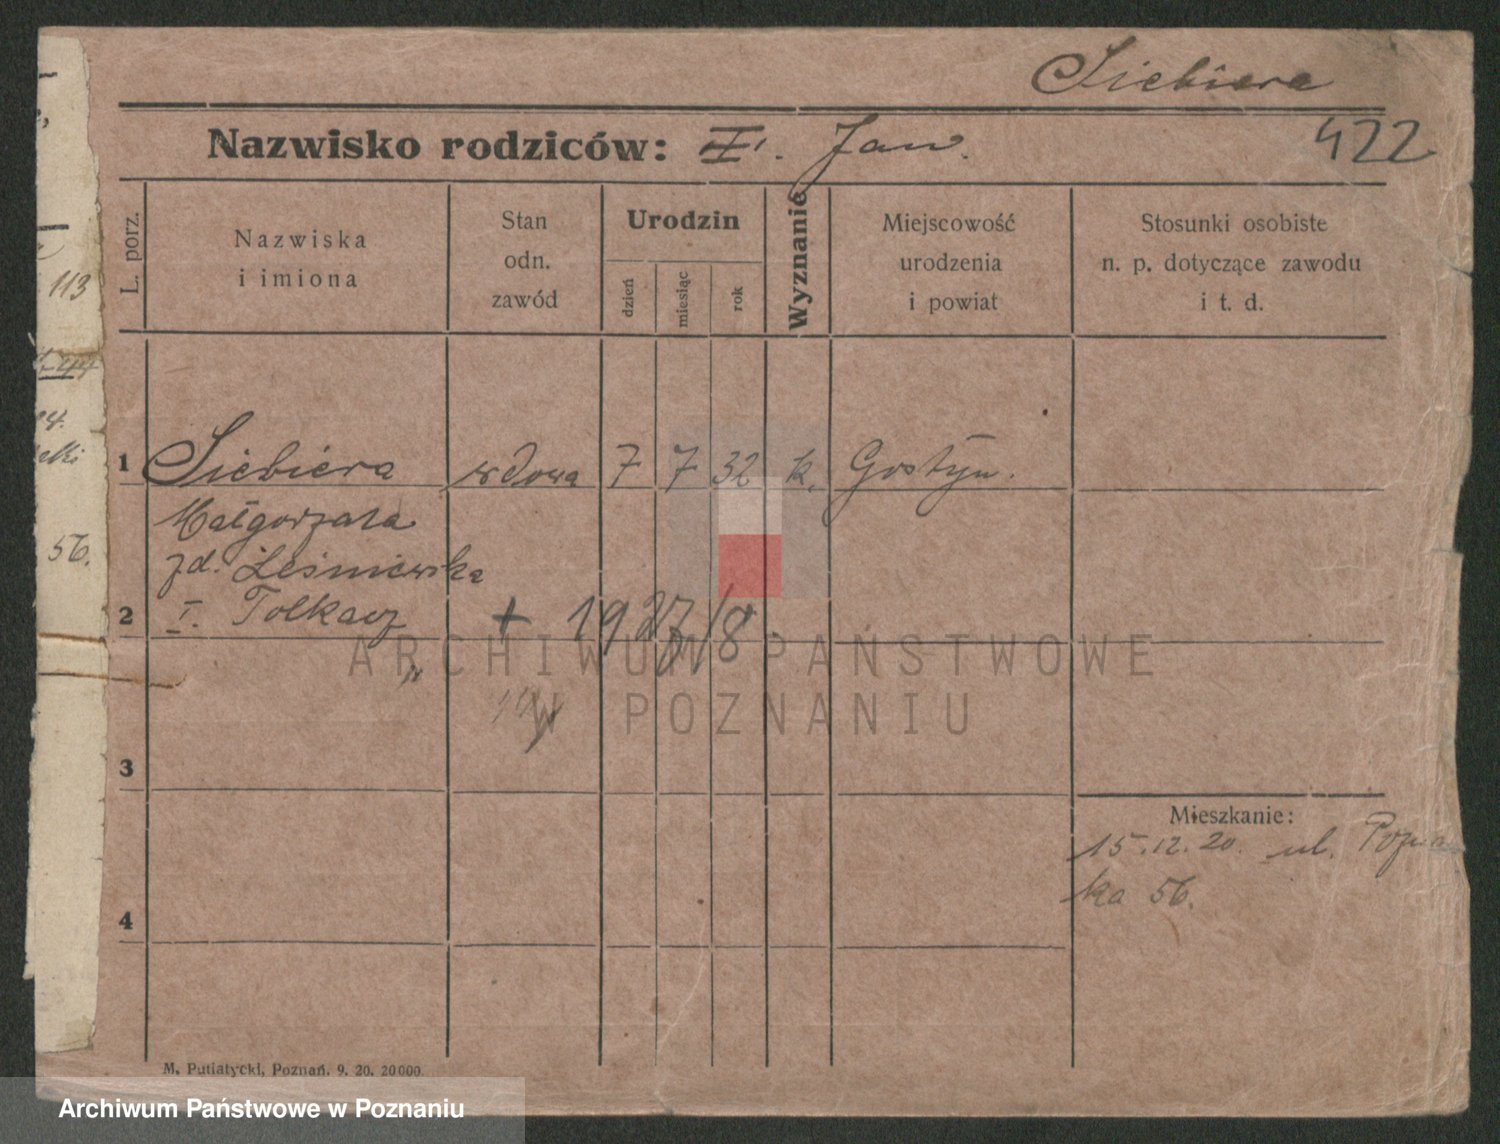 Siebiera
Nazwisko rodziców: II. Jan.
422
L. porz.
Nazwiska
i imiona
Stan
odn.
zawód
Urodzin
dzień
miesiąc
rok
Wyznanie
Miejscowość
urodzenia
i powiat
Stosunki osobiste
n. p. dotyczące zawodu
i t. d.
113
44
56.
1 Siebiera wdowa 7 7 32 k. Gostyń.
Małgorzata
zd. Leśniewska
2 I. Tolkacz + 1927/8.
3
Mieszkanie:
15.12.20. ul. Pozna
ka 56.
4
M. Putiatycki, Poznań. 9. 20. 20000.
ARCHIWUM PAŃSTWOWE
W POZNANIU
Archiwum Państwowe w Poznaniu